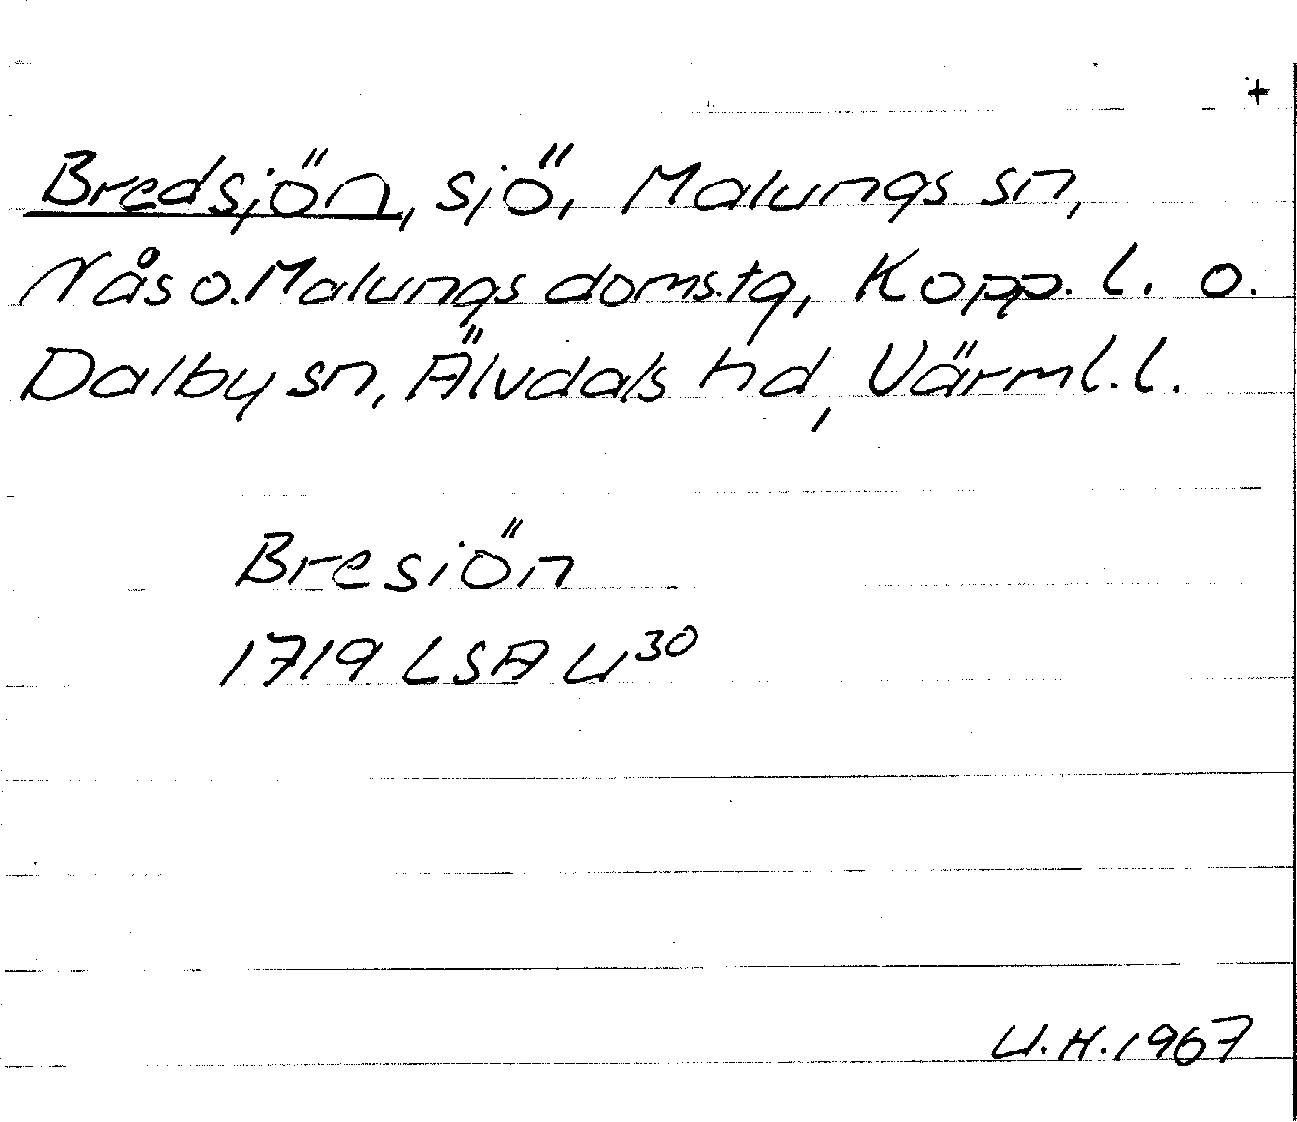 +
Bredsjön, sjö, Malungs sn,
Nås o. Malungs doms.tg, Kopp. l. o.
Dalby sn, Älvdals hd, Värml. l.
Bresiön
1719 LSA U³⁰
U.H. 1967